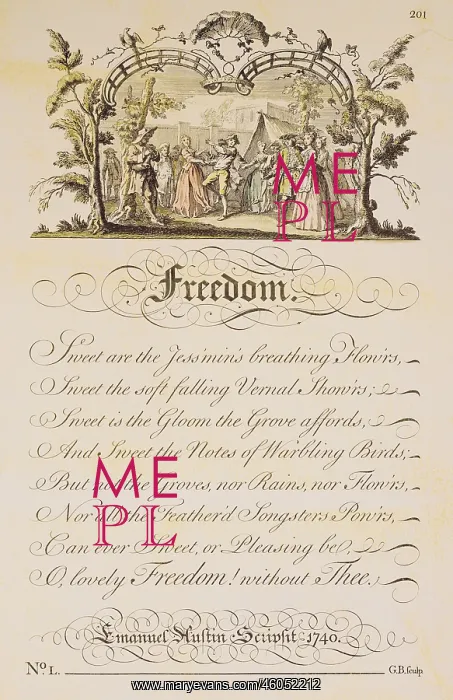 201
Freedom.
Sweet are the Jess'min's breathing Flow'rs,
Sweet the soft falling Vernal Show'rs;
Sweet is the Gloom the Grove affords,
And Sweet the Notes of Warbling Birds;
But not the Groves, nor Rains, nor Flow'rs,
Nor all the Feather'd Songsters Pow'rs,
Can ever Sweet, or Pleasing be,
O, lovely Freedom! without Thee.
Emanuel Austin Scripsit 1740.
No L. G.B. sculp
ME
PL
ME
PL
www.maryevans.com/46052212